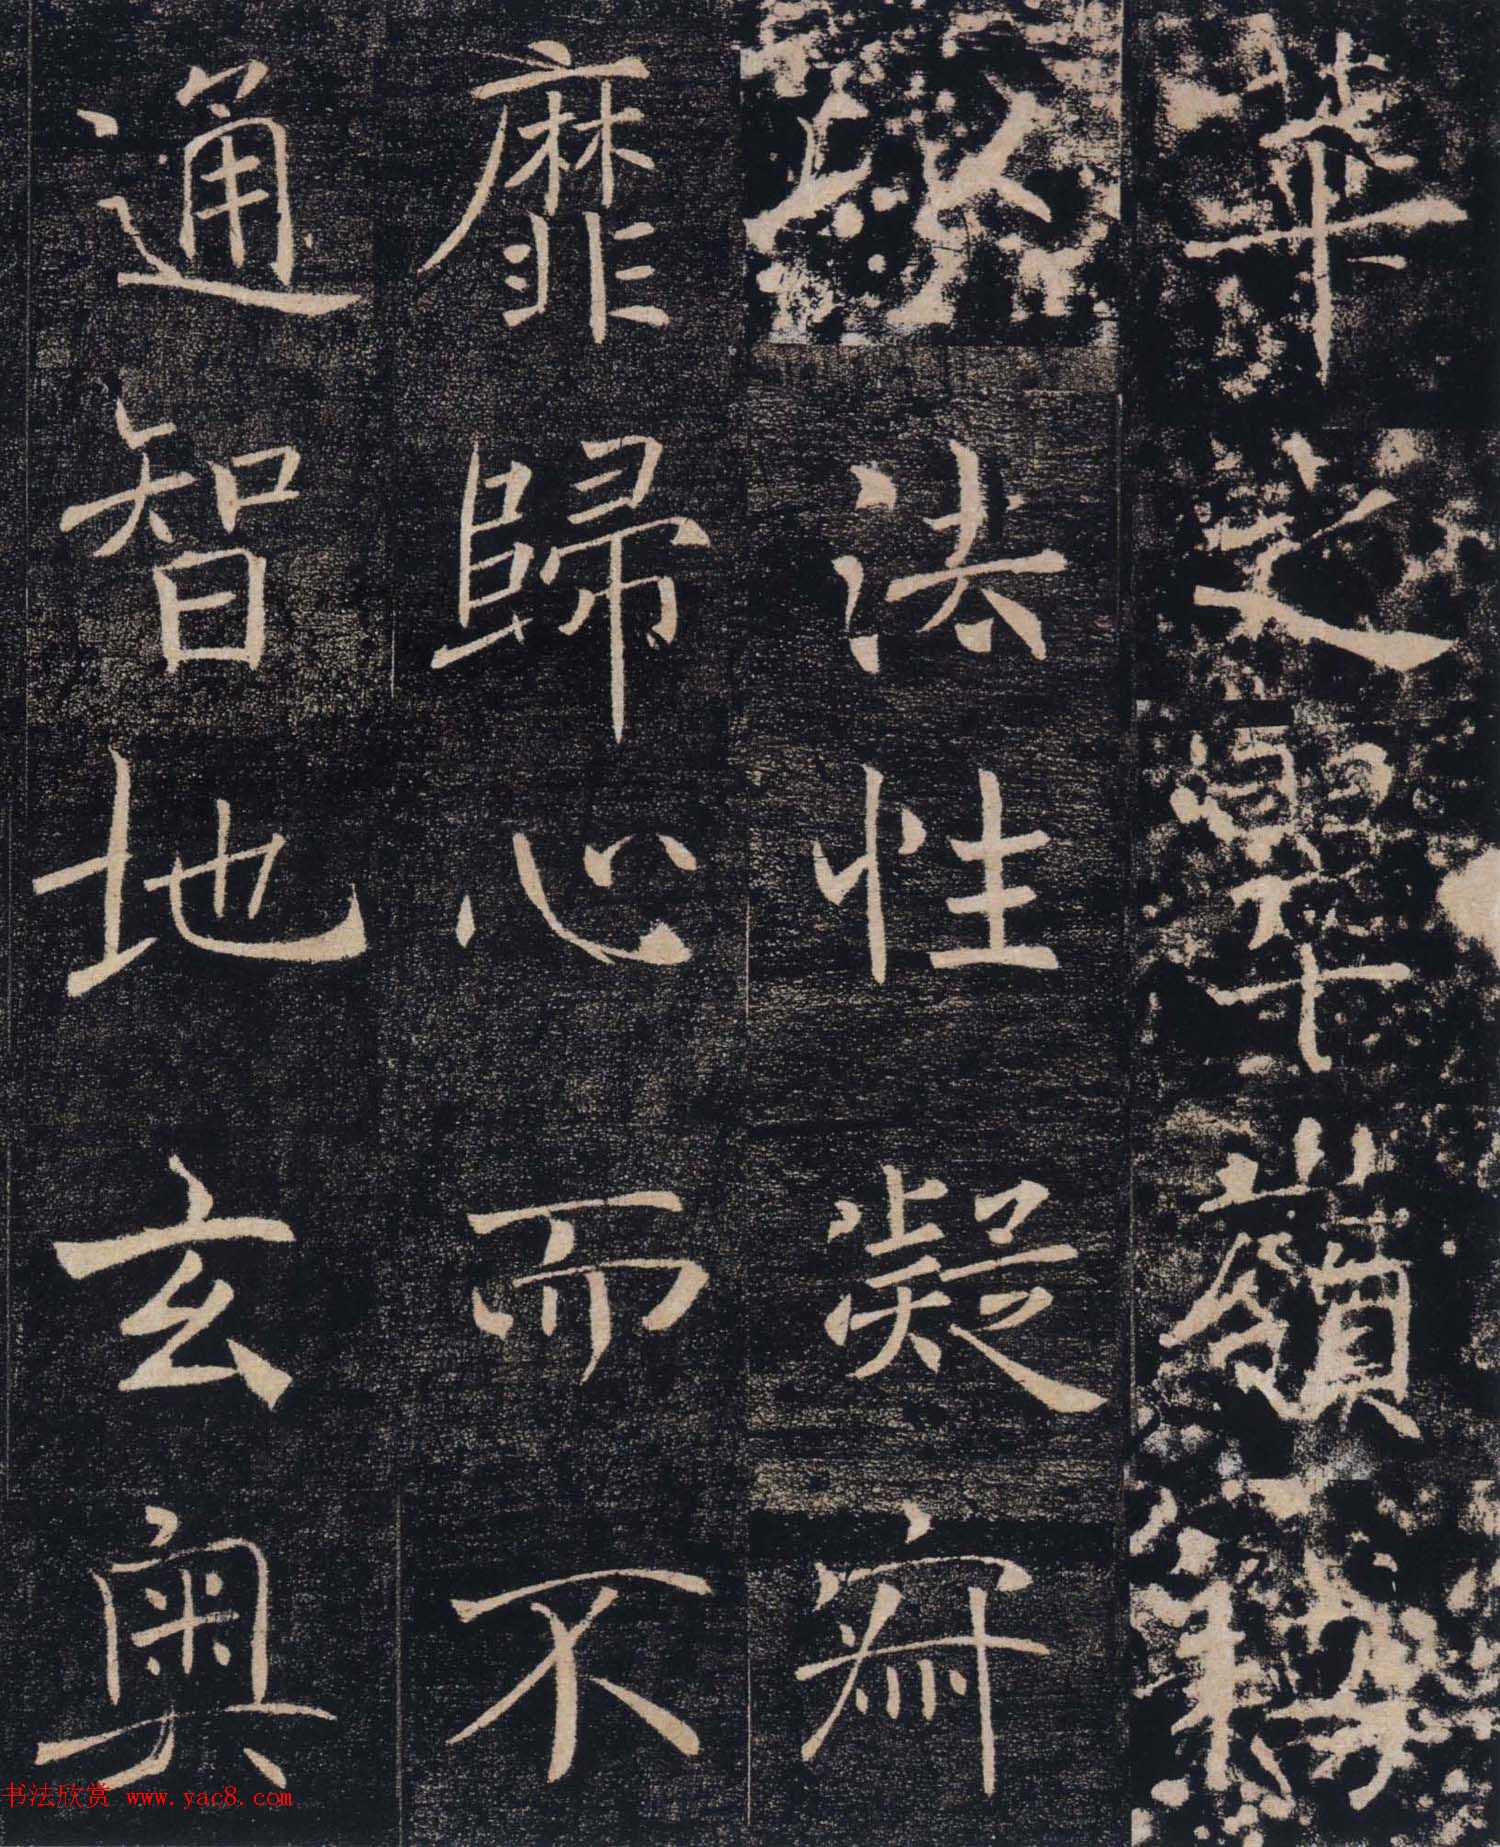 華之翠嶺竊
以法性凝寂
靡歸心而不
通智地玄奥
书法欣赏 www.yac8.com